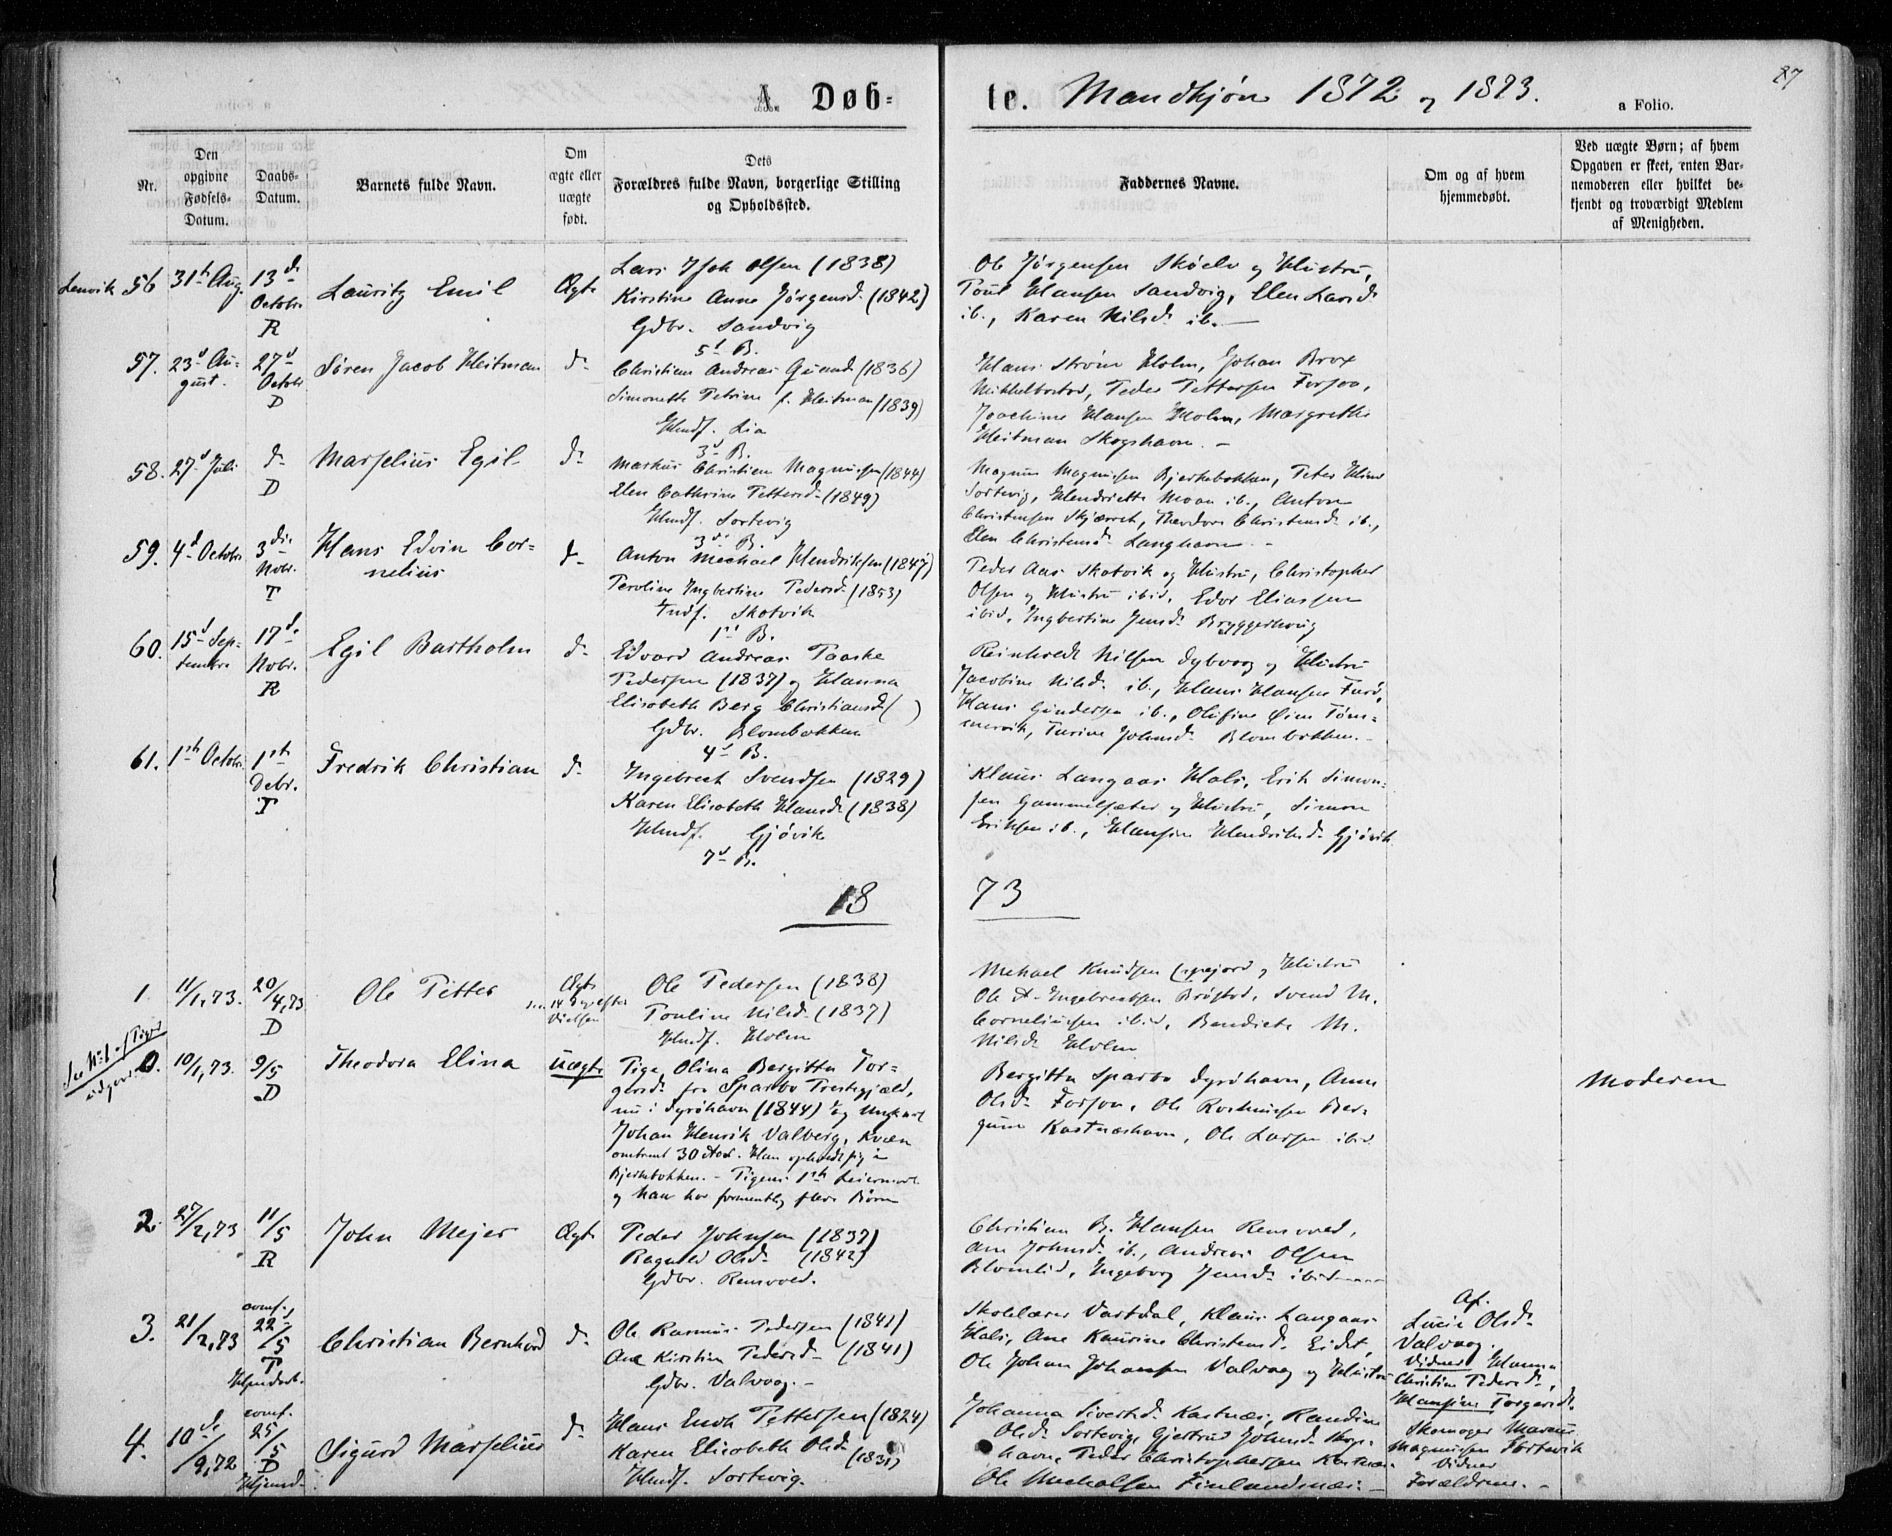 A. Døb-
te. Mandkjøn 1872 og 1873.
a Folio.
87
Nr.
Den opgivne Fødsels-Datum.
Daabs-Datum.
Barnets fulde Navn.
Om ægte eller uægte født.
Dets Forældres fulde Navn, borgerlige Stilling og Opholdssted.
Faddernes Navne.
Om og af hvem hjemmedøbt.
Ved uægte Børn; af hvem
Opgaven er skeet, enten Bar-
nemoderen eller hvilket be-
kjendt og troværdigt Medlem
af Menigheden.
Lenvik 56 31te Aug. 13de Octobr. R
Lauritz Emil
Ægte
Lars Olsen (1838)
Kirstine Anne Jørgensd. (1842)
Gdbr. Sandvig
5te B.
Ole Jørgensen Skøelv og Hustru,
Poul Hansen Sandvig, Elen Larsd.
ib., Karen Nilsd. ib.
57. 23d August. 27d Octobr. D
Søren Jacob Heitman
do
Christian Andreas Quand (1836)
Simonette Petrine f. Heitman (1839)
Hmdf. Lia
3d B.
Hans Strøm Holm, Johan Brox
Mikkelbostad, Peder Pettersen Forsøe,
Joachime Hansen Holm, Margrethe
Heitman Skogshavn. -
58. 27d Juli do D
Marselius Egil
do
Markus Christian Magnussen (1844)
Elen Cathrine Pettersd. (1849)
Hmdf. Sortevig
3de B.
Magnus Magnussen Bjerkebakken, Peter
Sortevig, Hendriette Moan ib., Anton
Christensen Skjærret, Theodore Christensd. ib.,
Elen Christensd. Langhavn. -
59. 4d Octobr. 3die Nobr. T
Hans Edvin Cor-
nelius
do
Anton Mechael Hendriksen (1847)
Peroline Ingbertine Pedersd. (1853)
Indf. Skotvik
1ste B.
Peder Aas Skotvik og Hustru, Christopher
Olsen og Hustru ibid. Edor Eliassen
ibid. Ingbertine Jensd. Bryggerhaug
60. 15d Septembr. 17de Nobr. R
Egil Bartholm
do
Edvard Andreas Paaske
Pedersen (1837) og Hanna
Elisabeth Berg Christiansd. ( )
Gdbr. Blombakken
4d B.
Reinholdt Nilsen Dybvaag og Hustru
Jacobine Nilsd. ib., Hans Hansen
Hans Gundersen ib., Olufine Øien Tøm-
mervik, Turine Johnsd. Blombakken. -
61. 1ste Octobr. 1ste Debr. T
Fredrik Christian
do
Ingebregt Svendsen (1829)
Karen Elisabeth Hansd. (1838)
Hmdf. Gjøvik
7d B.
Klaus Langaas Hals, Erik Simon-
sen Gammelsæter og Hustru, Simon
Eriksen ib., Hansine Hendriksd. Gjøvik
18 73
1. 11/1,73. 20/4,73 D
Ole Petter
Ægte
efter Vielsen
Ole Pedersen (1838)
Pauline Nilsd. (1837)
Hmdf. Holm
Mehael Knudsen og Hustru
Ole A. Ingebregtsen Brøstad, Svend M.
Corneliussen ibid, Bendicte M.
Nilsd. Holm
0. 10/1,73. 9/5 D
Theodora Elina
Uægte
Pige Olina Bergitta Tor-
gersd. fra Sparbo Prestegjæld,
nu i Dyrøhavn (1844) og Ungkarl
Johan Henrik Valberg, Kvæn
omtrent 30 Aar. Han opholdt sig i
Bjerkebakken. - Pigens 1ste Leiermaal
og han har formentlig flere Børn
Bergitta Sparbo Dyrøhavn, Anne
Olsd. Forson, Ole Rasmussen Ber-
gum Kastneshavn, Ole Larsen ibid.
Moderen
2. 27/2,73 11/5 R
John Mejer
Ægte
Peder Johnsen (1837)
Ragnild Olsd. (1842)
Gdbr. Rensvold.
Christian B. Hansen Rensvold,
Ane Johnsd. ib., Andreas Olsen
Blomlid, Ingeborg Jensd. ibid
3. 21/2,73 conf. 22/5 T
Christian Bernhard
do
Ole Rasmus Pedersen (1841)
Ane Kirstine Pedersd. (1841)
Gdbr. Valvaag. -
Skolelærer Vartdal, Klaus Langaas
Hals, Ane Kaurine Christensd. Eidet,
Ole Johan Johansen Valvaag og Hustru
Af.
Lucie Olsd.
Valvaag.
Vidner Hanna
Christine Pedersd.,
Hansine Torgersd.
4. 10de/9,72 conf. 25/5 D
Sigurd Marselius
do
Hans Enok Pettersen (1824)
Karen Elisabeth Olsd. (1831)
Hmdf. Sortevig.
Johanna Sivertsd. Kastnes, Randine
Olsd. Sortevig, Gjertrud Johnsd. Skogs-
havn, Peder Christophersen Kastnes.
Ole Mechalsen Finlandsnes. -
Skomager Marcus
Magnussen Sortevik
Vidner
Forældrene. -